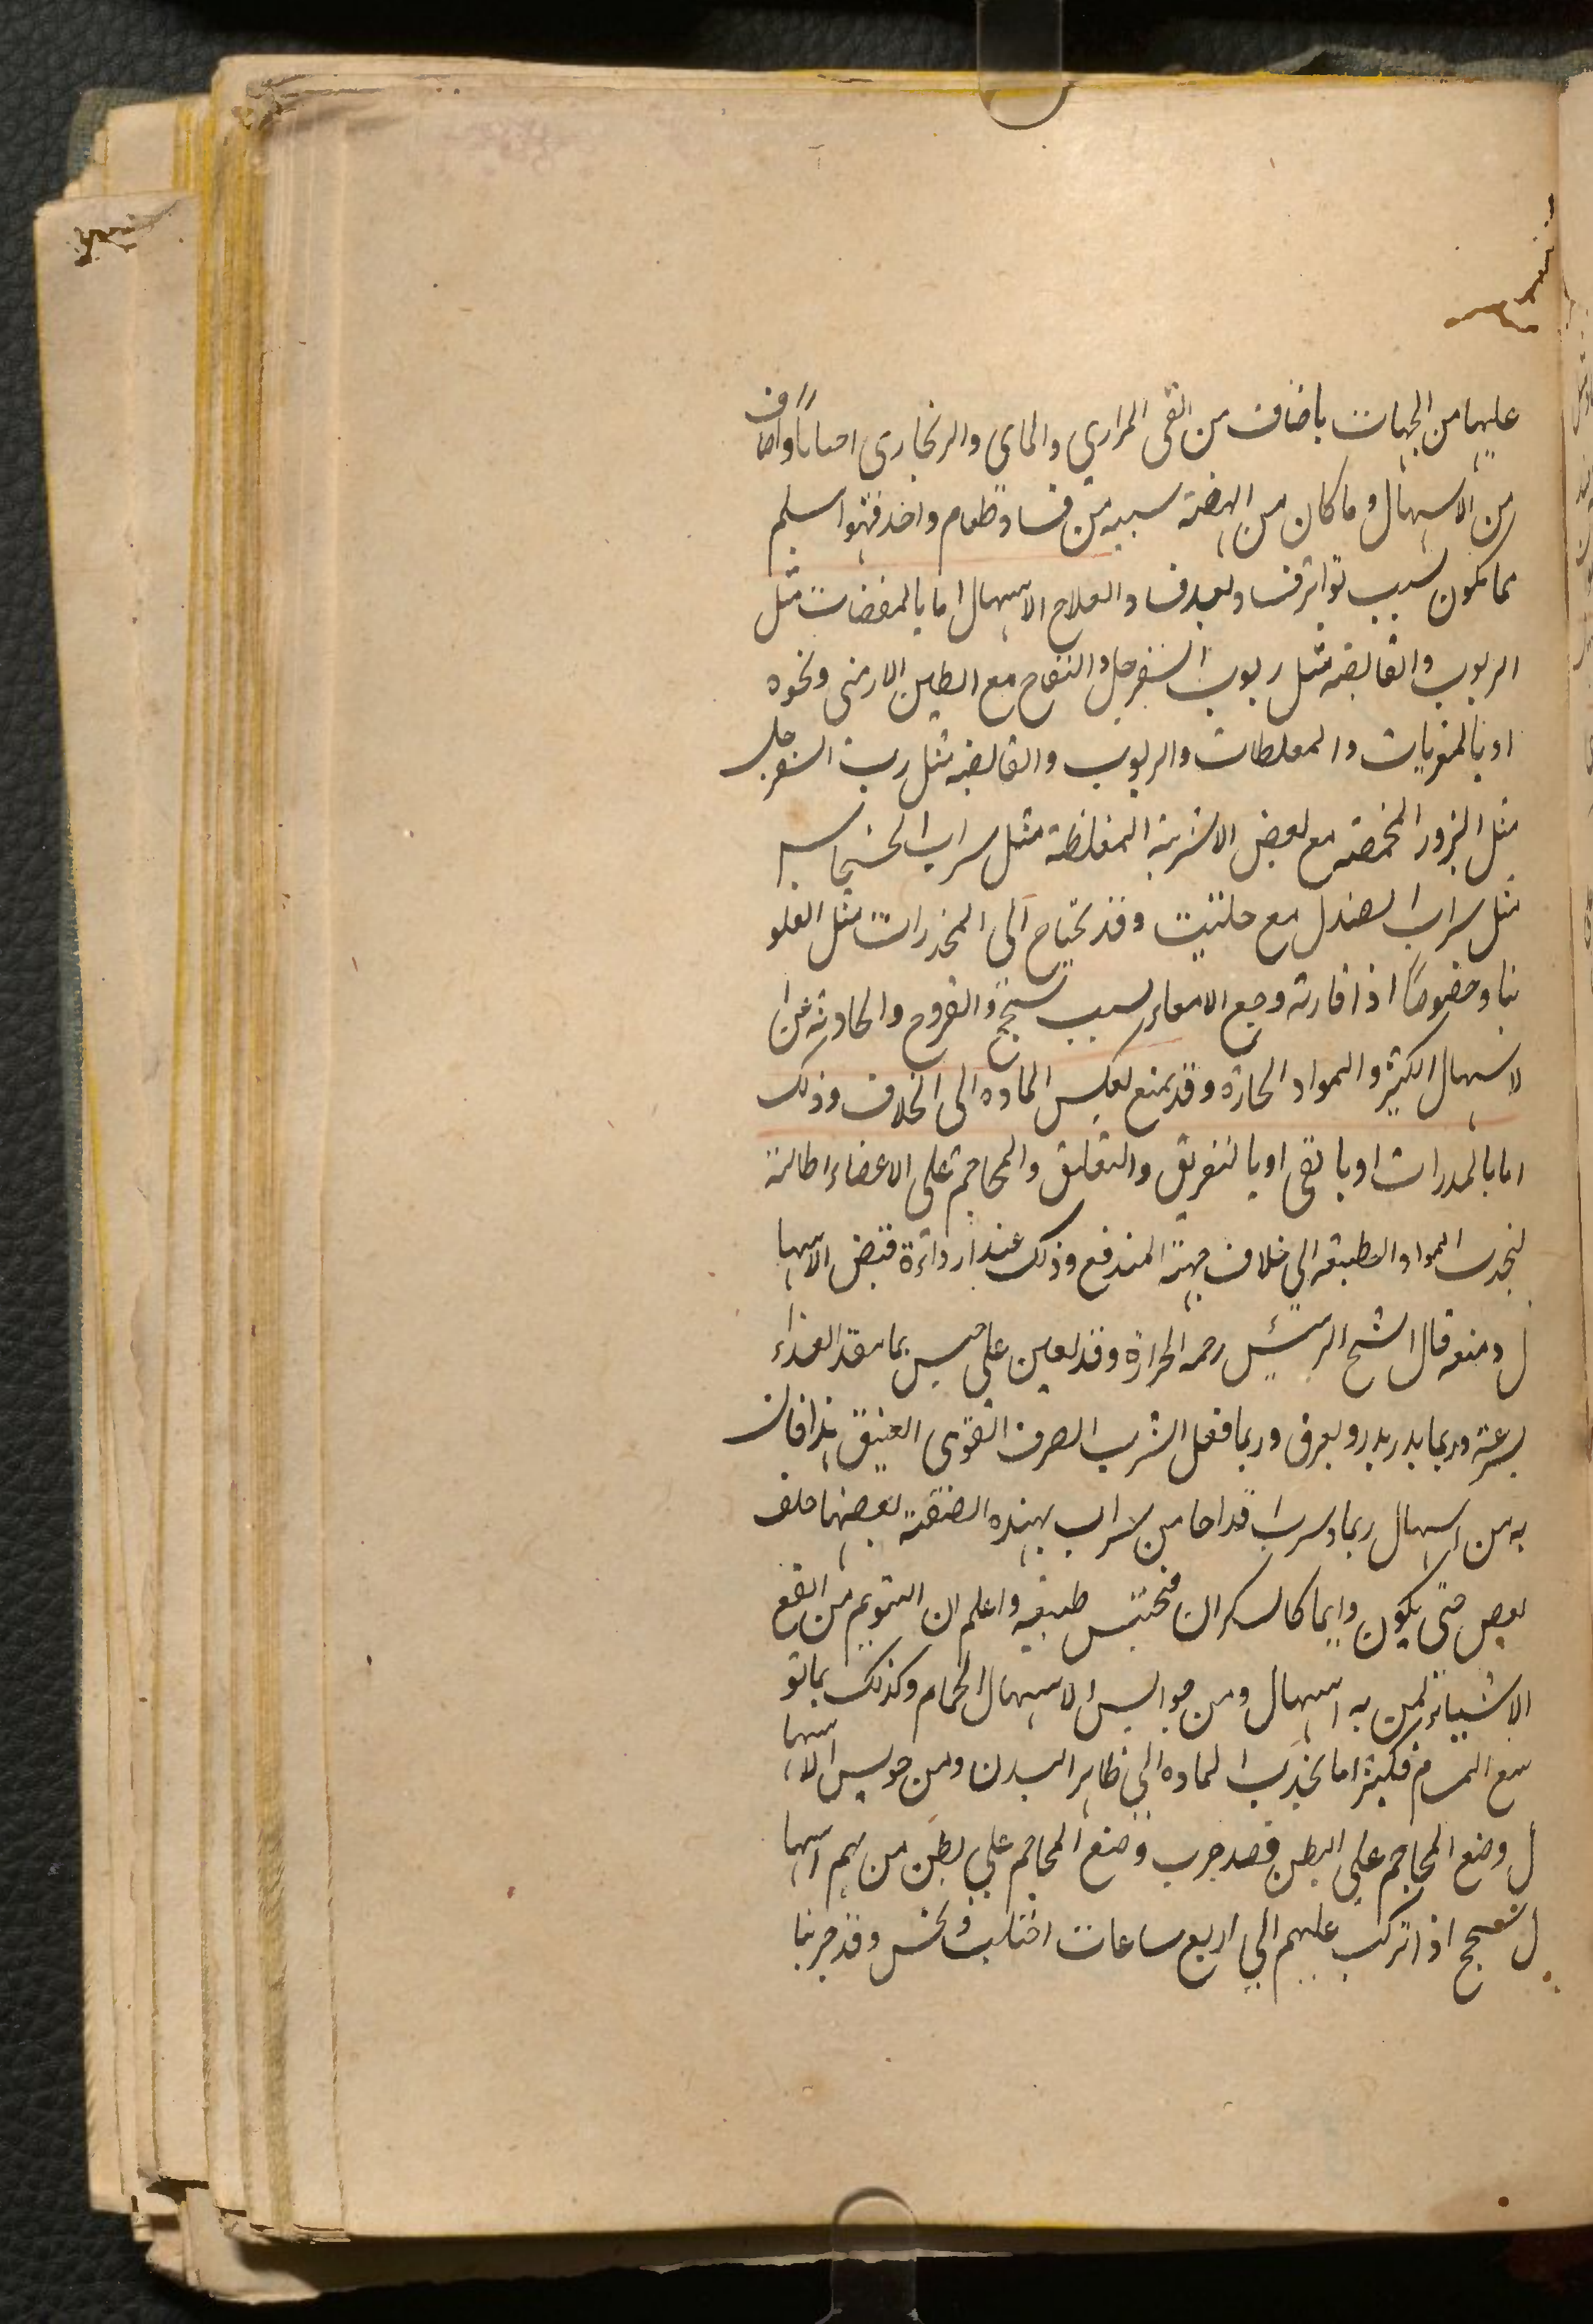 عليها من الجهات باضاف من القى المرارى والماى والزنجارى احيانا واضاف
من الاسهال وما كان من الهضة سببه من فساد طعام واحد فهو اسلم
مما يكون بسبب تواتر فساد بعد فساد والعلاج الاسهال اما بالمغضات مثل
الربوب والقابضه مثل ربوب السفرجل والتفاح مع الطين الارمنى ونحوه
او بالمغريات والمغلطات والربوب والقابضه مثل رب السفرجل
مثل البزور المحمصة مع بعض الاشربة المغلظة مثل سراب الخشخاش
مثل سراب الصندل مع حلتيت وقد يحتاج الى المخدرات مثل الفلو
نيا وخصوصًا اذا قارنه وجع الامعاء بسبب سحج والقروح والحادثه عن ا
لاسهال الكثير والمواد الحارة وقد يمنع بعكس الماده الى الخلاف وذلك
اما بالمدرات او بالقى او بالتعريق والتعليق والمحاجم على الاعضاء الطالية
لنجذب المواد الطبيعه الى خلاف جهة المندفع وذلك عند ارداءة قبض الاسها
ل ومنعه قال الشيخ الرئيس رحمه الحرارة وقد يعين على حبس بما ينفذ الغذاء
بسرعة وربما يدر بدر ويعرق وربما فعل الشرب الصرف القوى العتيق هذا فان
به من اسهال ربما وسرب اقداحا من سراب بهذه الصفة بعضها خلف
بعض حتى يكون دايما كالسكران فتحتبس طبيعه واعلم ان التنويم من انفع
الاشياء لمن به اسهال ومن حوابس الاسهال الحمام وكذلك بما تو
سع المسام فكثيرا ما يجذب المادة الى ظاهر البدن ومن حوبس الاسها
ل وضع المحاجم على البطن فصد جرب وضع المحاجم على بطن من بهم اسها
ل سحج اذا تركت عليهم الى اربع ساعات احتبس وقد جربنا